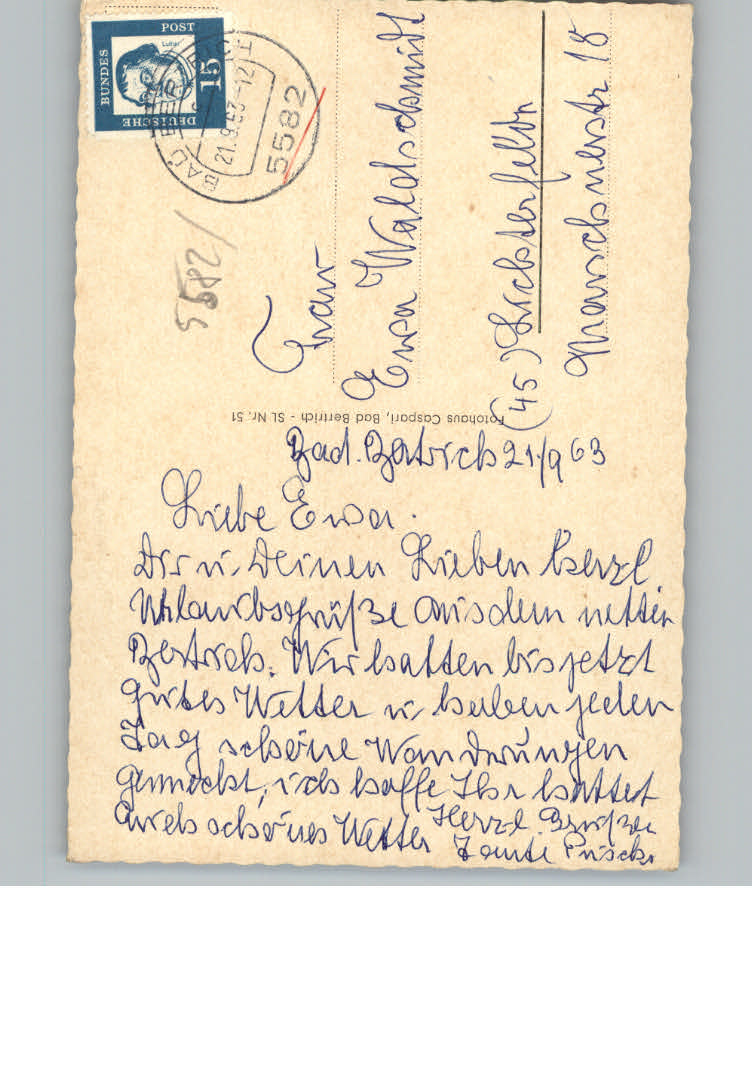 DEUTSCHE
BUNDES
POST
15
Luther
BAD BERTRICH
21.9.63-12
5582
5582/
Frau
Ewa Waldschmidt
(45) Lichterfeld
Fotohaus Caspari, Bad Bertrich - SL Nr. 51
Bad. Bertrich 21/9 63
Liebe Ewa.
Dir u. Deinen Lieben herzl
Uhlaubsgrüße aus dem netten
Bertrich. Wir hatten bis jetzt
gutes Wetter u, haben jeden
Tag schöne Wanderungen
gemacht, ich hoffe Ihr hattet
auch schönes Wetter
Herzl. Grüßen
Tante